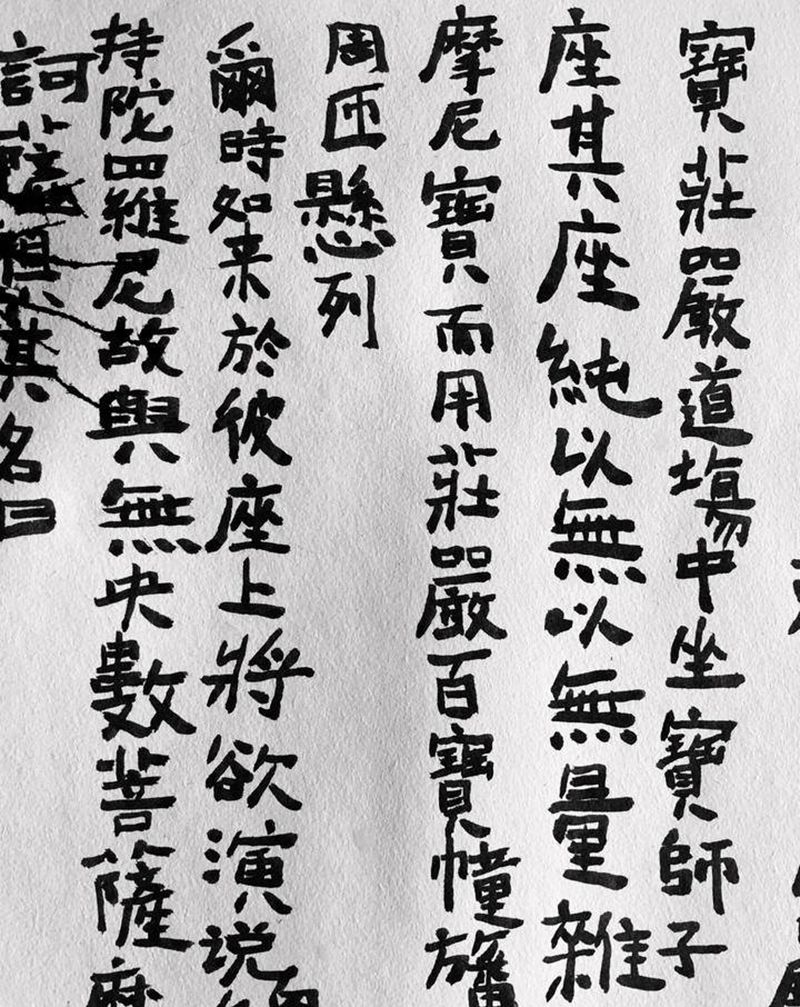 寶莊嚴道場中坐寶師子
座其座純以無以無量雜
摩尼寶而用莊嚴百寶幢旛
周匝懸列
爾時如来於彼座上將欲演说
持陀羅尼故與無央數菩薩摩
訶薩俱其名曰